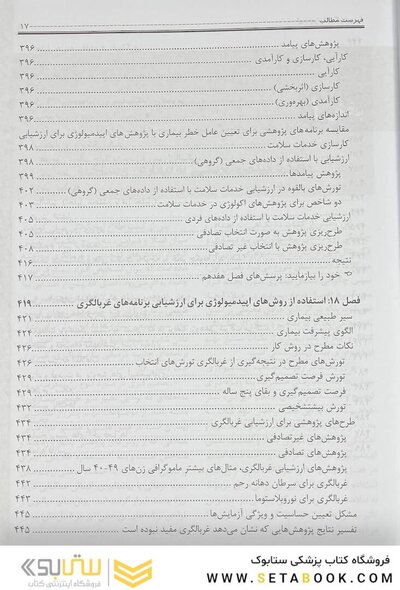 فهرست مطالب ۱۷
پژوهش‌های پیامد ۳۹۶
کارآیی، کارسازی و کارآمدی ۳۹۶
کارآیی ۳۹۶
کارسازی (اثربخشی) ۳۹۶
کارآمدی (بهره‌وری) ۳۹۶
اندازه‌های پیامد ۳۹۶
مقایسه برنامه‌های پژوهشی برای تعیین عامل خطر بیماری با پژوهش‌های اپیدمیولوژی برای ارزشیابی
کارسازی خدمات سلامت ۳۹۸
ارزشیابی با استفاده از داده‌های جمعی (گروهی) ۳۹۸
پژوهش پیامدها ۳۹۹
تورش‌های بالقوه در ارزشیابی خدمات سلامت با استفاده از داده‌های جمعی (گروهی) ۴۰۲
دو شاخص برای پژوهش‌های اکولوژی در خدمات سلامت ۴۰۳
ارزشیابی خدمات سلامت با استفاده از داده‌های فردی ۴۰۵
طرح‌ریزی پژوهش به صورت انتخاب تصادفی ۴۰۵
طرح‌ریزی پژوهش با انتخاب غیر تصادفی ۴۰۸
نتیجه ۴۱۶
خود را بیازمایید: پرسش‌های فصل هفدهم ۴۱۷
فصل ۱۸: استفاده از روش‌های اپیدمیولوژی برای ارزشیابی برنامه‌های غربالگری ۴۱۹
سیر طبیعی بیماری ۴۲۱
الگوی پیشرفت بیماری ۴۲۴
نکات مطرح در روش کار ۴۲۶
تورش‌های مطرح در نتیجه‌گیری از غربالگری تورش‌های انتخاب ۴۲۶
تورش فرصت تصمیم‌گیری ۴۲۹
فرصت تصمیم‌گیری و بقای پنج ساله ۴۲۹
تورش بیشتشخیصی ۴۳۲
طرح‌های پژوهشی برای ارزشیابی غربالگری ۴۳۴
پژوهش‌های غیرتصادفی ۴۳۴
پژوهش‌های تصادفی ۴۳۴
پژوهش‌های ارزشیابی غربالگری، مثال‌های بیشتر ماموگرافی زن‌های ۴۹-۴۰ سال ۴۳۸
غربالگری برای سرطان دهانه رحم ۴۴۲
غربالگری برای نوروبلاستوما ۴۴۳
مشکل تعیین حساسیت و ویژگی آزمایش‌ها ۴۴۵
تفسیر نتایج پژوهش‌هایی که نشان می‌دهد غربالگری مفید نبوده است ۴۴۵
فروشگاه کتاب پزشکی ستابوک
WWW.SETABOOK.COM
ستابوک
فروشگاه اینترنتی کتاب